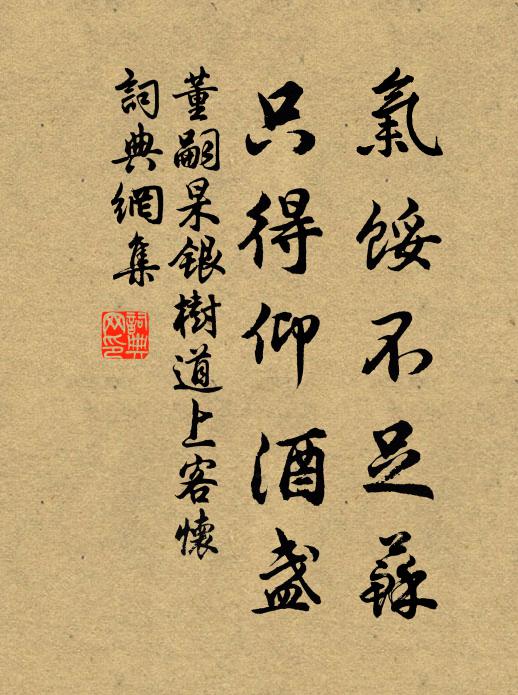 氣餒不足蘇
只得仰酒盞
董嗣杲銀樹道上客懷
詞典網集
詞典网印